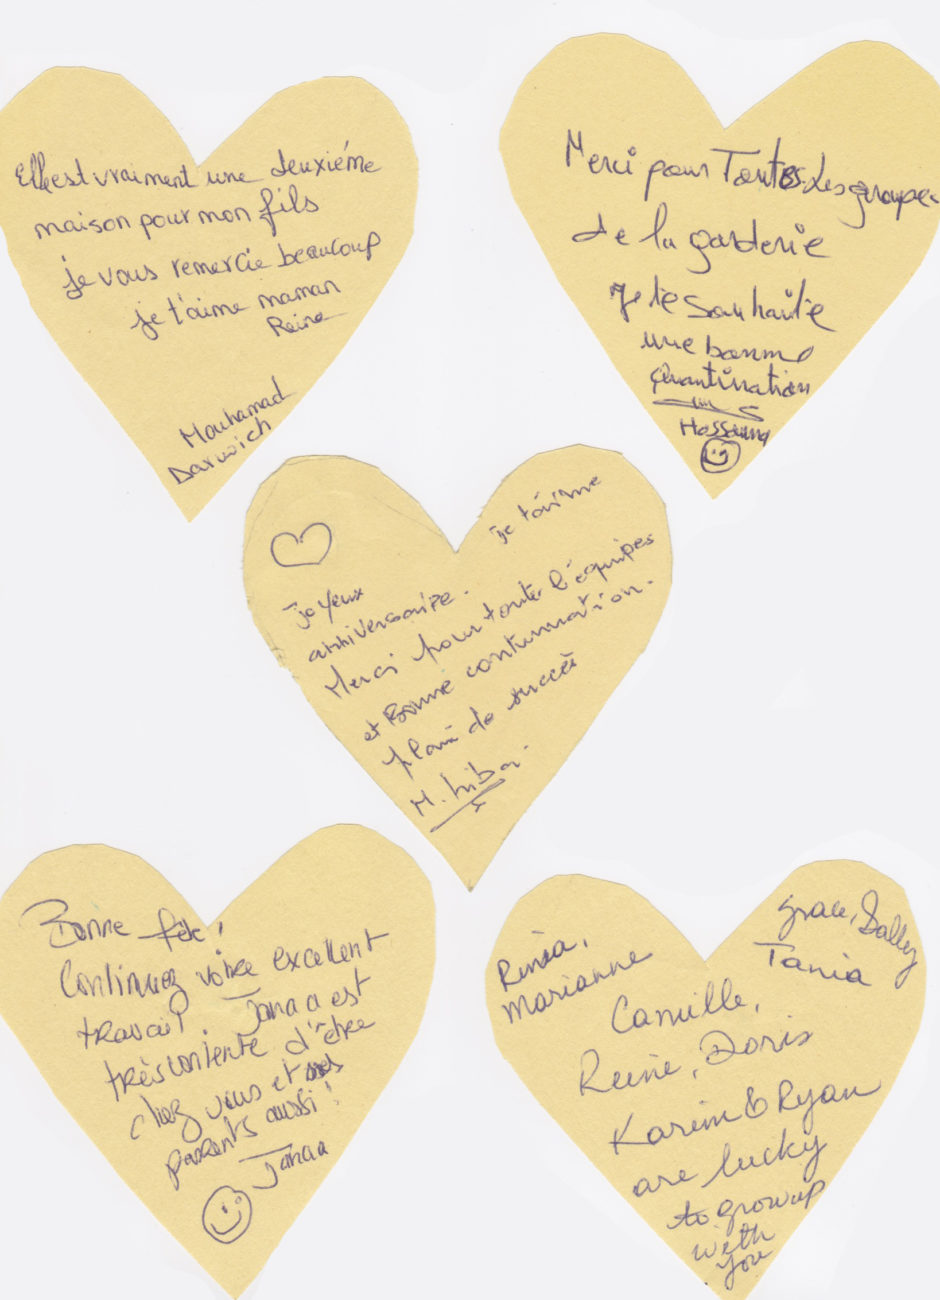 Elle est vraiment une deuxiéme
maison pour mon fils
je vous remercie beaucoup
je t'aime maman
Reine
Mouhamad
Darwich
Merci pour Toutes Les groupe
de la garderie
je te souhaite
une bonne
Hassouna
je t'aime
joyeux
anniversaire.
Merci pour toute l'équipes
et Bonne continuation.
plain de succès
M. hiba.
Bonne fête!
Continuez votre excellent
travail. Janaa est
très contente d'être
chez vous et ses
parents aussi!
Janaa
Rinéa,
Marianne
Grace, Sally
Tania
Camille,
Reine, Doris
Karim & Ryan
are lucky
to grow up
with
you